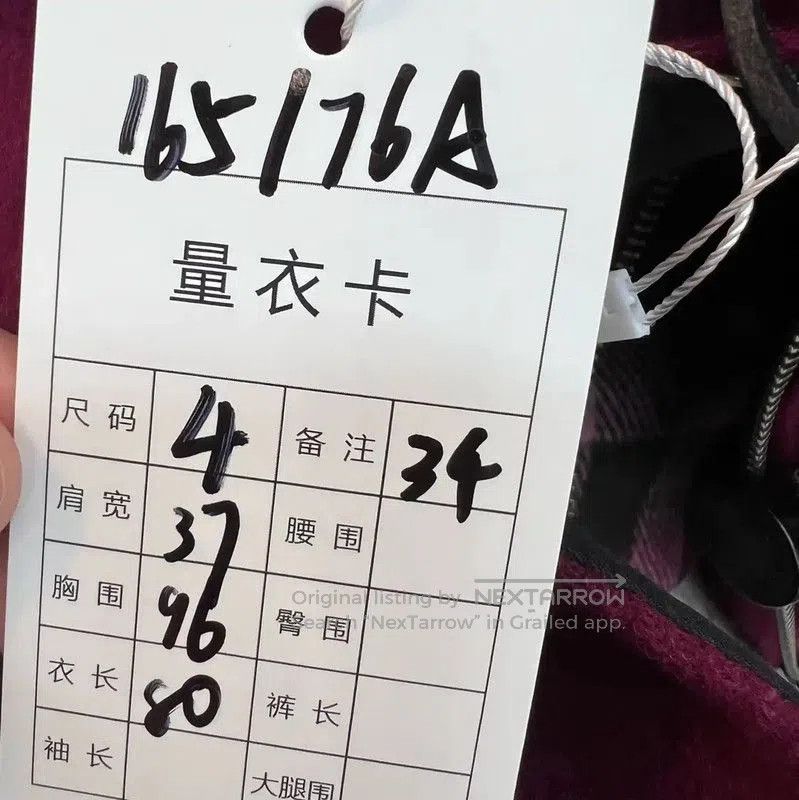 165/76A
量衣卡
尺码 4 备注 34
肩宽 37 腰围
胸围 96 臀围
衣长 80 裤长
袖长 大腿围
Original listing by NEXTARROW
Search "NexTarrow" in Grailed app.